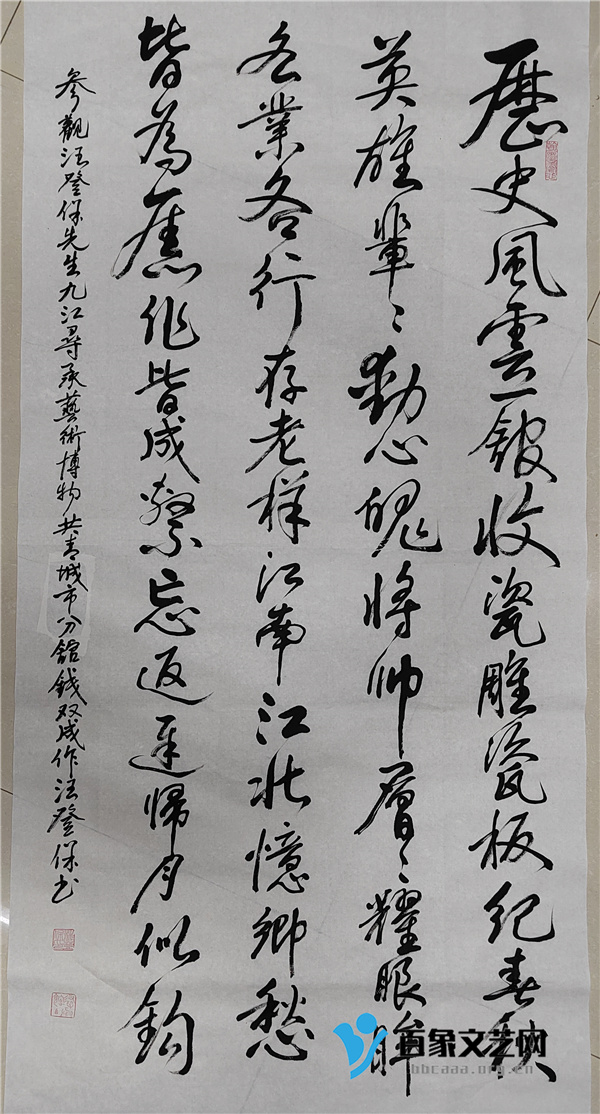 歷史風雲一館收瓷雕瓷板紀春秋
英雄輩々動心魄將帥層々耀眼眸
各業各行存老樣江南江北憶鄉愁
皆為作皆成忘返遲歸月似鈎
參觀汪登保先生九江尋承藝術博物共青城市分館錢双成作汪登保书
百象文艺网
bbcaaa.org.cn